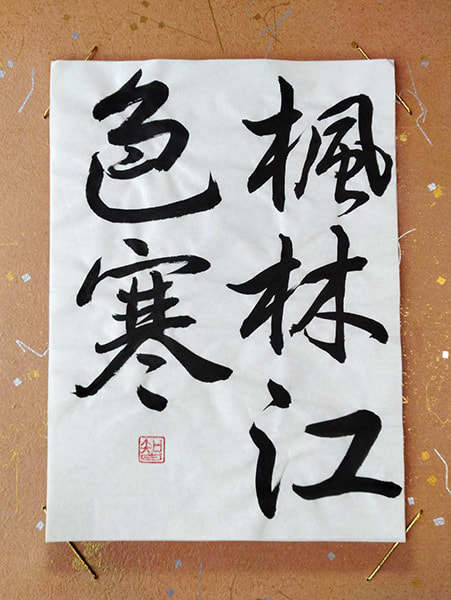 楓林江
色寒